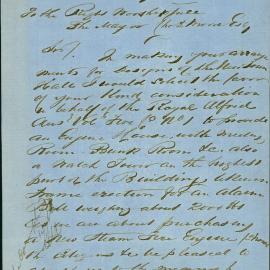 To the Right Worshipful
The Mayor Chas Moore Esq
Sir,
In making your arrange
ments for Designs of the New Town
Hall I would solicit the favor
of your kind consideration
in behalf of the Royal Alfred
Aus Vol Fire Co No 1 to provide
an Engine House, with Meeting
Room Bunk Room &c. also
a Watch Tower on the highest
part of the Building & an
Frame erection for an Alarm
Bell weighing about 2000 lbs
as we are about purchasing
a New Steam Fire Engine
the citizens to be pleased a